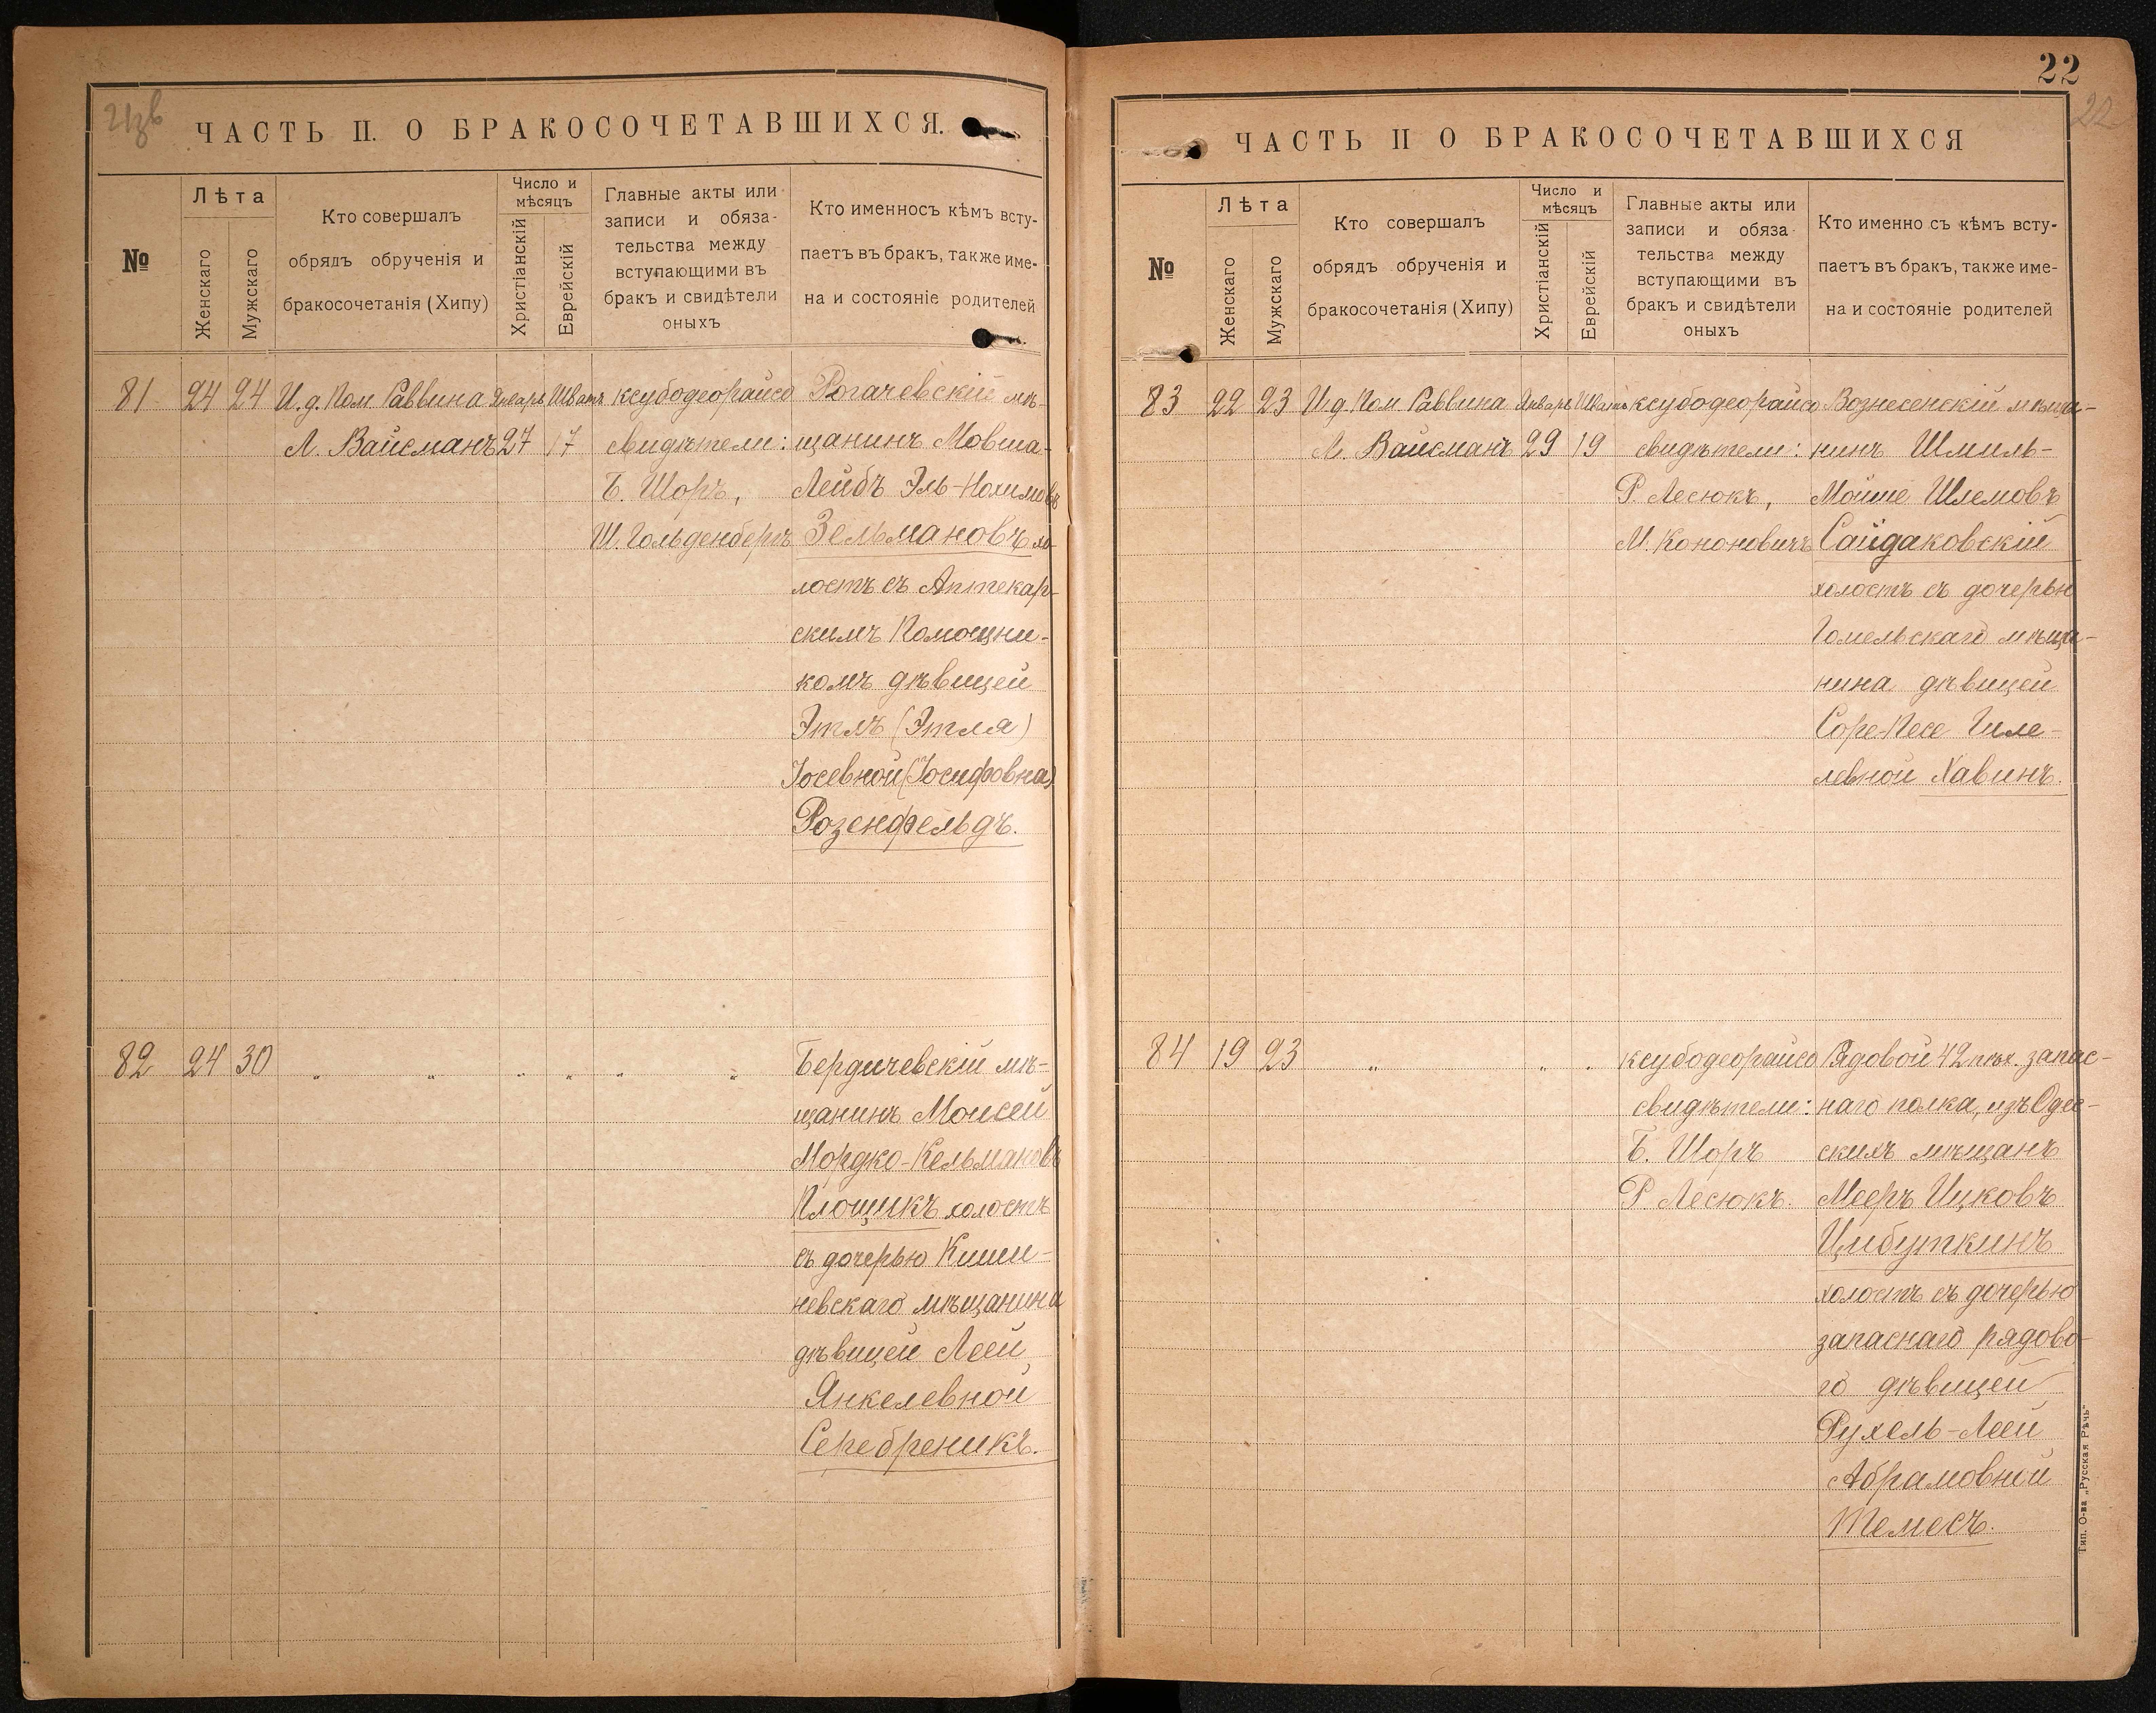 21зв
ЧАСТЬ II. О БРАКОСОЧЕТАВШИХСЯ.
№
Лѣта
Женскаго
Мужскаго
Кто совершалъ
обрядъ обрученія и
бракосочетанія (Хипу)
Число и
мѣсяцъ
Христіанскій
Еврейскій
Главные акты или
записи и обяза-
тельства между
вступающими въ
бракъ и свидѣтели
оныхъ
Кто именносъ кѣмъ всту-
паетъ въ бракъ, также име-
на и состояніе родителей
81 24 24 И.д. Пом Раввина Январь Шватъ ксубодеорайсо Рогачевскій мѣ-
Л. Вайсманъ 27 17 свидѣтели: щанинъ Мовша-
Б. Шоръ, Лейбъ Эль-Нохимовъ
Ш. Гольденбергъ Зельмановъ хо-
лостъ съ Аптекар-
скимъ Помощни-
комъ дѣвицей
Этлъ (Этля)
Іосевной (Іосифовна)
Розенфельдъ.
82 24 30 „ „ „ „ „ „ Бердичевскій мѣ-
щанинъ Моисей
Мордко-Кельмановъ
Площикъ холостъ
съ дочерью Киши-
невскаго мѣщанина
дѣвицей Леей
Янкелевной
Серебреникъ.
22
22
ЧАСТЬ II О БРАКОСОЧЕТАВШИХСЯ
№
Лѣта
Женскаго
Мужскаго
Кто совершалъ
обрядъ обрученія и
бракосочетанія (Хипу)
Число и
мѣсяцъ
Христіанскій
Еврейскій
Главные акты или
записи и обяза-
тельства между
вступающими въ
бракъ и свидѣтели
оныхъ
Кто именно съ кѣмъ всту-
паетъ въ бракъ, также име-
на и состояніе родителей
83 22 23 И.д. Пом Раввина Январь Шватъ ксубодеорайсо Вознесенскій мѣща-
Л. Вайсманъ 29 19 свидѣтели: нинъ Шмиль-
Р. Лесюкъ, Мойше Шлемовъ
М. Кононовичъ Сайдаковскій
холостъ съ дочерью
Гомельскаго мѣща-
нина дѣвицей
Соре-Песе Гиле-
левной Хавинъ.
84 19 23 „ „ „ ксубодеорайсо Рядовой 42 пѣх. запас-
свидѣтели: наго полка, изъ Одес-
Б. Шоръ скихъ мѣщанъ
Р Лесюкъ. Мееръ Ицковъ
Цибуткинъ
холостъ съ дочерью
запаснаго рядово-
го дѣвицей
Рухель-Леей
Абрамовной
Темесъ.
Тип. О-ва „Русская Рѣчь"